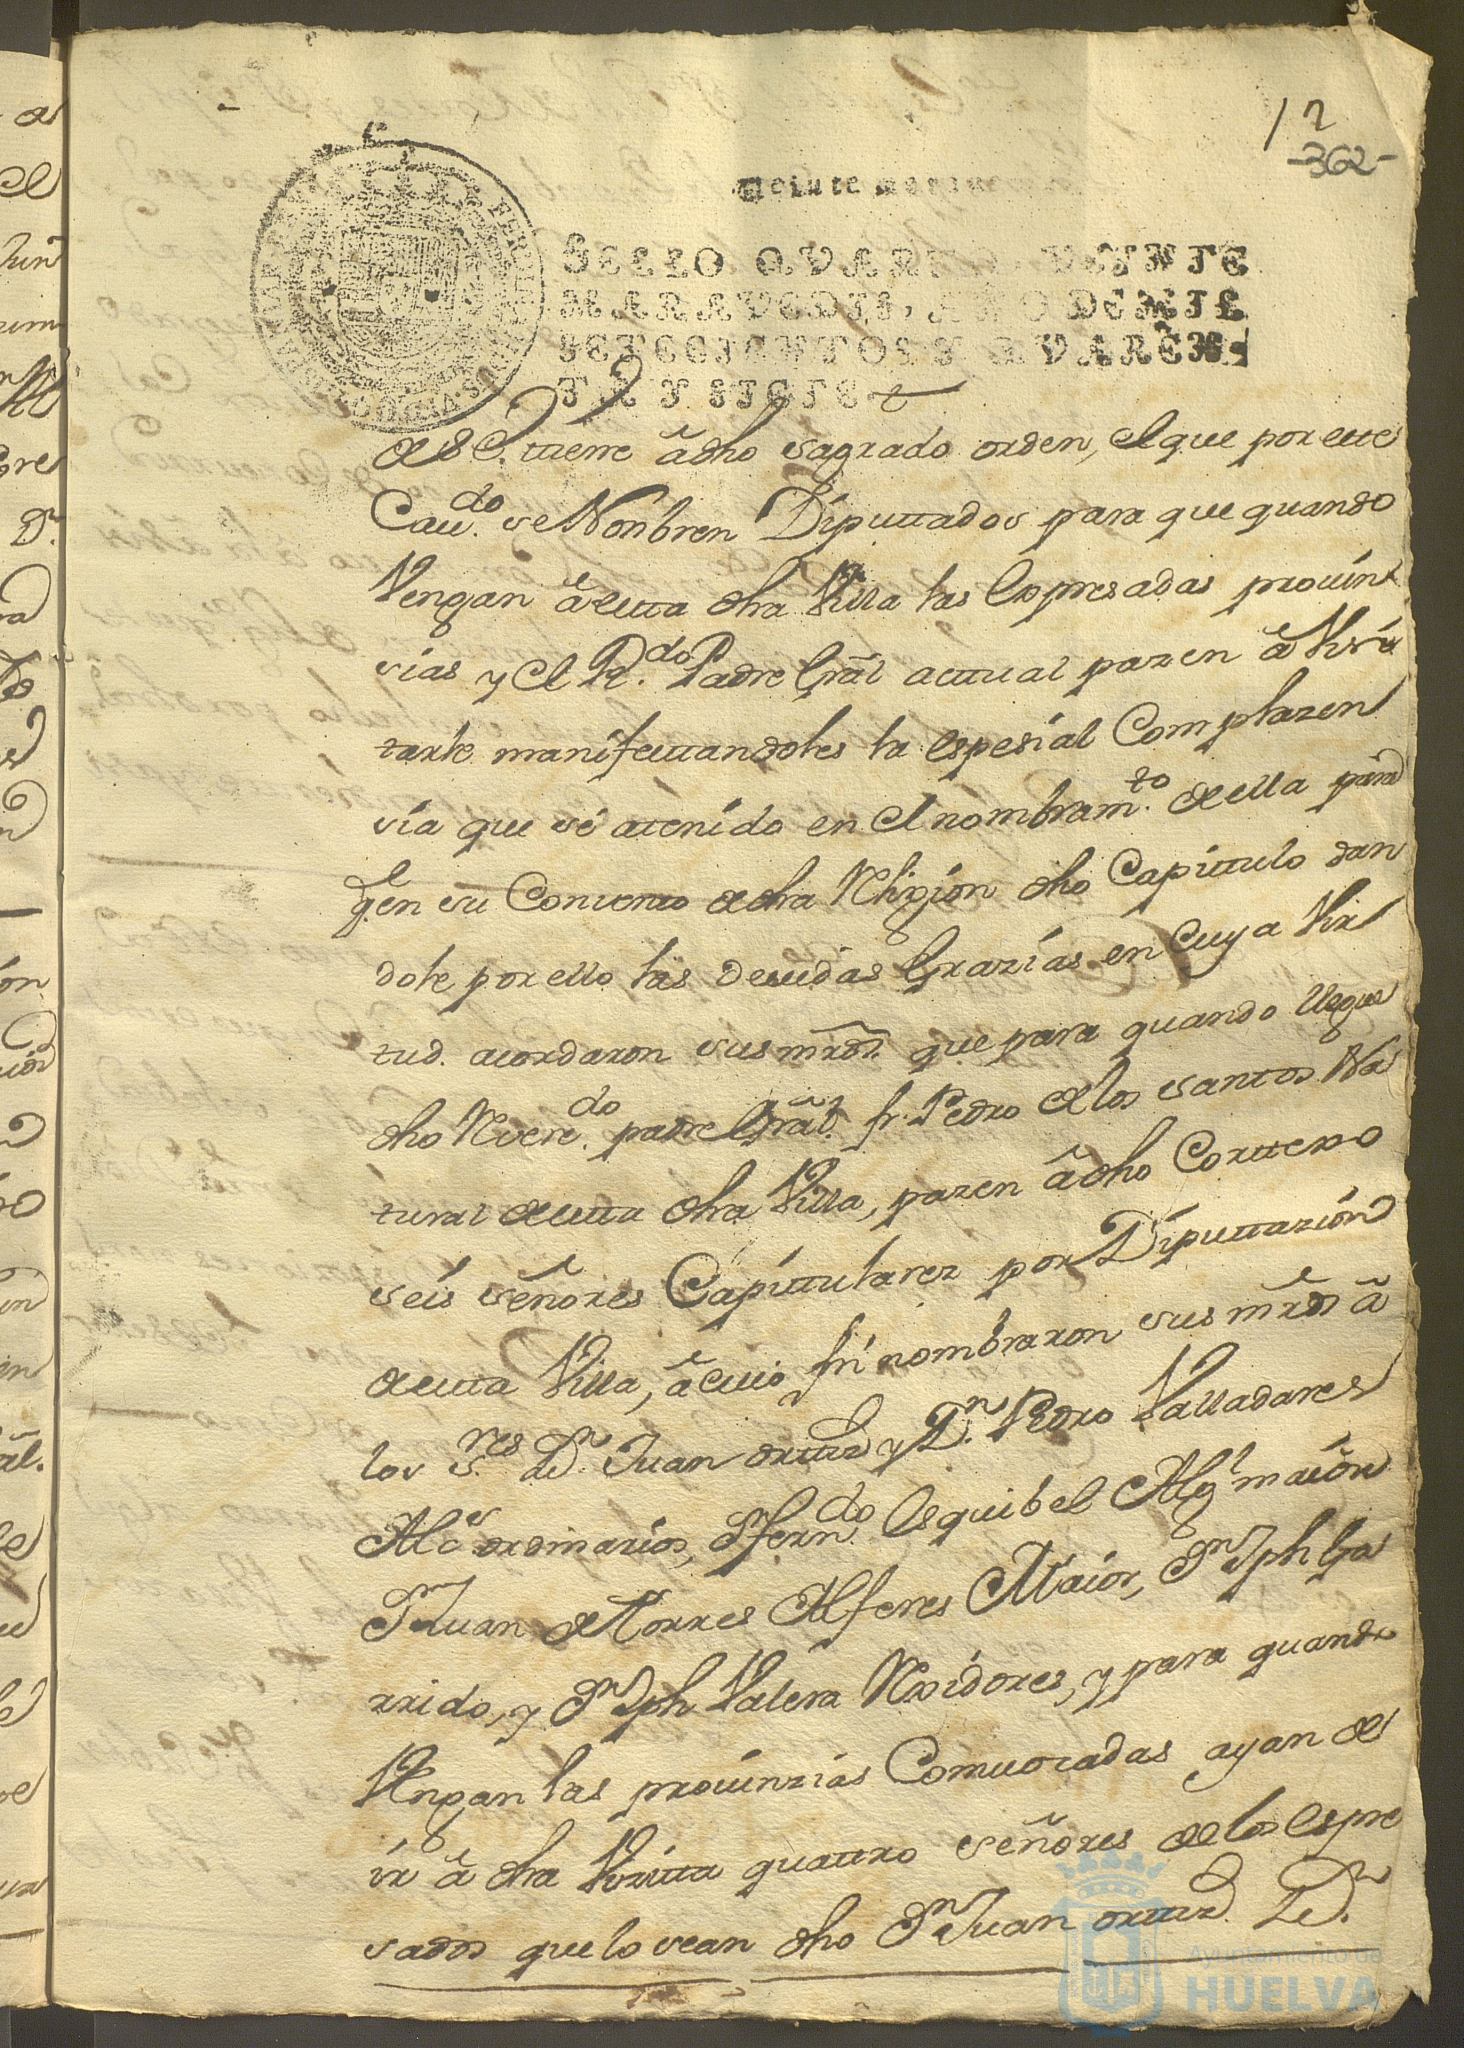 12
-362-
Veinte maravedis
SELLO QVARTO, VEINTE
MARAVEDIS, AÑO DE MIL
SETECIENTOS Y QVAREN-
TA Y SIETE
tiene â dho sagrado orden, el que por este
Cavdo. se Nonbren Diputtados para que quando
Vengan â estta dha Villa las Expresadas provin
sias y el Rdo. Padre Gral actual pazen â Visi
tarle manifesttandoles la espesial Complazen
sia que sê atenido en el nombramto. de ella para
qe en su Convento de dha Rligion dho Capittulo dan
dole por ello las devidas Grazias en Cuya Vir
tud acordaron sus mrds. que para quando llegue
dho Rveredo. padre Gral. fr. Pedro de los santos Na
tural de estta dha Villa, pazen â dho Conttento
seis señores Capittulares por Diputtazion
de estta Villa, â cuio fin nombraron sus mrds â
los Sres. de Dn Juan orttiz y Dn. Pedro Valladares
Alces ordinarios, Dn ferndo. Esquibel Algl maior
Dn Juan de Torres Alferes Maior, Dn Jph Ga
rrido, y Dn Jph Valera Rexidores, y para quando
Vengan las provinzias Comvocadas ayan de
ir â dha Visitta quattro señores de los espre
sados que lo sean dho Dn Juan orttiz Dn.
Ayuntamiento de
HUELVA